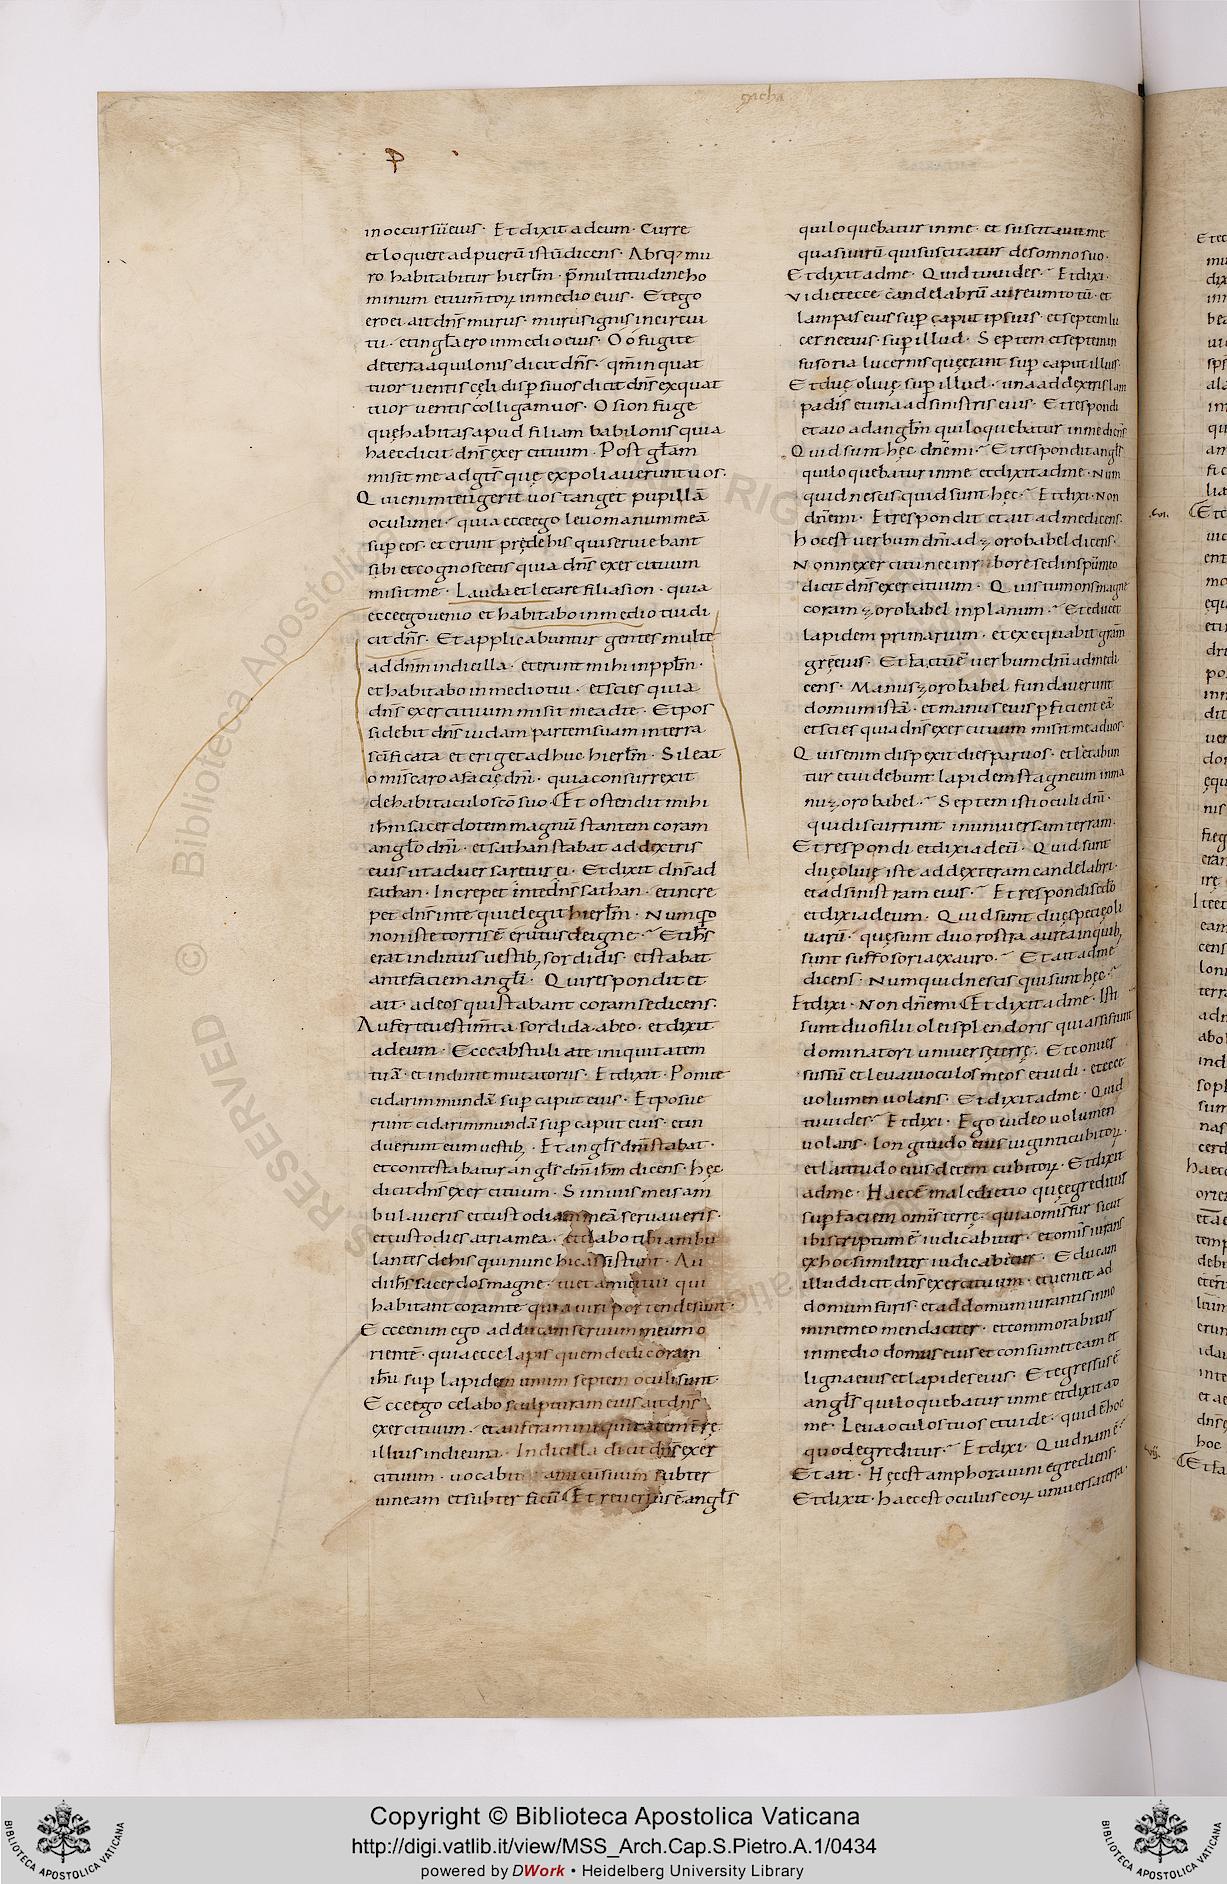 zacha
in occursū eius · Et dixit ad eum · Curre
et loquere ad puerū istū dicens · Absq; mu
ro habitabitur hierłm · p̄ multitudine ho
minum et ium̄torꝝ in medio eius · Et ego
ero ei ait dn̄s murus · murus ignis in circui
tu · et in gła ero in medio eius · O o fugite
de terra aquilonis dicit dn̄s · qm̄ in quat
tuor ventis cęli dispersi uos dicit dn̄s ex quat
tuor ventis colligam uos · O sion fuge
quę habitas apud filiam babilonis quia
haec dicit dn̄s exercituum · Post głam
misit me ad gt̄s quę expoliauerunt uos ·
Qui enim tetigerit uos tanget pupillā
oculi mei · quia ecce ego leuo manum meā
sup eos · et erunt prędę his qui seruiebant
sibi et cognoscetis quia dn̄s exercituum
misit me · Lauda et letare filia sion · quia
ecce ego uenio et habitabo in medio tui di
cit dn̄s · Et applicabuntur gentes multe
ad dnm̄ in die illa · et erunt mihi in ppłm ·
et habitabo in medio tui · et scies quia
dn̄s exercituum misit me ad te · Et pos
sidebit dn̄s iudam partem suam in terra
scīficata et eriget adhuc hierłm · Sileat
omis caro a facię dn̄i · quia consurrexit
de habitaculo scō suo · Et ostendit mihi
ihm̄ sacerdotem magnū stantem coram
angło dn̄i · et sathan stabat ad dextris
eius ut aduersaretur ei · Et dixit dn̄s ad
sathan · Increpet in te dn̄s sathan · et incre
pet dn̄s in te qui elegit hierłm · Numquo
non iste torris ē erutus de igne · Et ihs̄
erat inditus uestib; sordidis · et stabat
ante faciem angłi · Qui respondit et
ait · ad eos qui stabant coram se dicens ·
Auferte uestim̄ta sordida ab eo · et dixit
ad eum · Ecce abstuli a te iniquitatem
tuā · et indui te mutatoriis · Et dixit · Ponite
cidarim mundā sup caput eius · Et posue
runt cidarim mundā sup caput eius · et in
duerunt eum uestib; · Et angłs dn̄i stabat ·
et contestabatur angłs dn̄i ihm̄ dicens · hęc
dicit dn̄s exercituum · Si in uiis meis am
bulaueris et custodiam meā seruaueris ·
et custodies atria mea · et dabo tibi ambu
lantes de his qui nunc hic assistunt · Au
di ihs̄ sacerdos magne · tu et amici tui qui
habitant coram te quia uiri portendesunt ·
Ecce enim ego adducam seruum meum o
rientē · quia ecce lapis quem dedi coram
ihū sup lapidem unum septem oculi sunt ·
Ecce ego celabo sculpturam eius ait dn̄s
exercituum · et auferam iniquitatem t̄rę
illius in die una · In die illa dicit dn̄s exer
cituum · uocabit amicus uum subter
uineam et subter ficū · Et reuersus ē angłs
qui loquebatur in me · et suscitauit me
quasi uirū qui suscitatur de somno suo ·
Et dixit ad me · Quid tu uides · Et dixi ·
vidi et ecce candelabrū aureum totū · et
lampas eius sup caput ipsius · et septem lu
cerne eius · sup illud · Septem et septem in
fusoria lucernis quę erant sup caput illius ·
Et duę oliuę sup illud · una ad dextris lam
padis et una ad sinistris eius · Et respondi
et aio ad angłm qui loquebatur in me dicēs
Quid sunt hęc dn̄e mi · Et respondit angłs
qui loquebatur in me et dixit ad me · Num
quid nescis quid sunt hęc · Et dixi · Non
dn̄e mi · Et respondit et ait ad me dicens ·
hoc est uerbum dn̄i ad zorobabel dicens ·
Non in exercitu nec in robore sed in spū meo
dicit dn̄s exercituum · Quis tu mons magne
coram zorobabel in planum · Et educet
lapidem primarium · et exequabit gram̄
gręeius · Et factū ē uerbum dn̄i ad me di
cens · Manus zorobabel fundauerunt
domum istā · et manus eius pficient eā
et scies quia dn̄s exercituum misit me ad uos ·
Quis enim dispexit dies paruos · et lętabun
tur et uidebunt lapidem stagneum in ma
nu zorobabel · Septem isti oculi dn̄i ·
qui discurrunt in uniuersam terram ·
Et respondi et dixi ad eū · Quid sunt
duę oliuę iste ad dexteram candelabri ·
et ad sinistram eius · Et respondi scdo
et dixi ad eum · Quid sunt duę spicę oli
uarū · quę sunt duo rostra aurea in quib;
sunt suffosoria ex auro · Et ait ad me
dicens · Numquid nescis qui sunt hęc ·
Et dixi · Non dn̄e mi · Et dixit ad me · Isti
sunt duo filii olei splendoris qui assistunt
dominatori uniuersę terrę · Et conuer
sus sū et leuaui oculos meos et uidi · et ecce
uolumen uolans · Et dixit ad me · Quid
tu uides · Et dixi · Ego uideo uolumen
uolans · longitudo eius uiginti cubitorꝝ ·
et latitudo eius decem cubitorꝝ · Et dixit
ad me · Haec ē maledictio quę egreditur
sup faciem omis terrę · quia omis fur sicut
ibi scriptum ē iudicabitur · et omis iurans
ex hoc similiter iudicabitur · Educam
illud dicit dn̄s exercituum · et ueniet ad
domum furis · et ad domum iurantis in no
mine meo mendaciter · et commorabitur
in medio domus eius et consumet eam et
ligna eius et lapides eius · Et egressus ē
angłs qui loquebatur in me et dixit ad
me · Leua oculos tuos et uide · quid ē hoc
quod egreditur · Et dixi · Quidnam ē ·
Et ait · Hęc est amphora una egrediens ·
Et dixit · haec est oculus eorꝝ in uniuersa terra ·
Copyright © Biblioteca Apostolica Vaticana
http://digi.vatlib.it/view/MSS_Arch.Cap.S.Pietro.A.1/0434
powered by DWork • Heidelberg University Library